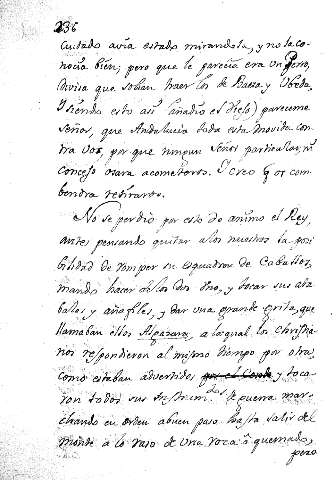 236
cuitado avia estado mirandola, y no la co-
nocia bien; pero que le parecia era un Perro,
divisa que solian traer los de Baeza y Ubeda,
Y siendo esto asi (añadio el Viejo) pareceme
Señor, que Andalucia toda esta movida con-
tra vos, por que ningun Señor particular, ni
Concejo osara acometeros. Y creo q os com-
bendra retiraros.
No se perdio por esto de animo el Rey,
antes pensando quitar a los nuestros la posi
bilidad de romper su esquadron de Caballos,
mando hacer de los dos Uno, y tocar sus ata
bales, y añafiles, y dar una grande grita, que
llamaban ellos Algazara, a la qual los Christia
nos respondieron al mismo tiempo por otra,
como estaban advertidos por el Conde y toca-
ron todos sus Instrum.tos de guerra mar-
chando en orden a buen paso hasta salir del
monte a lo raso de una roca ò quemado,
pero